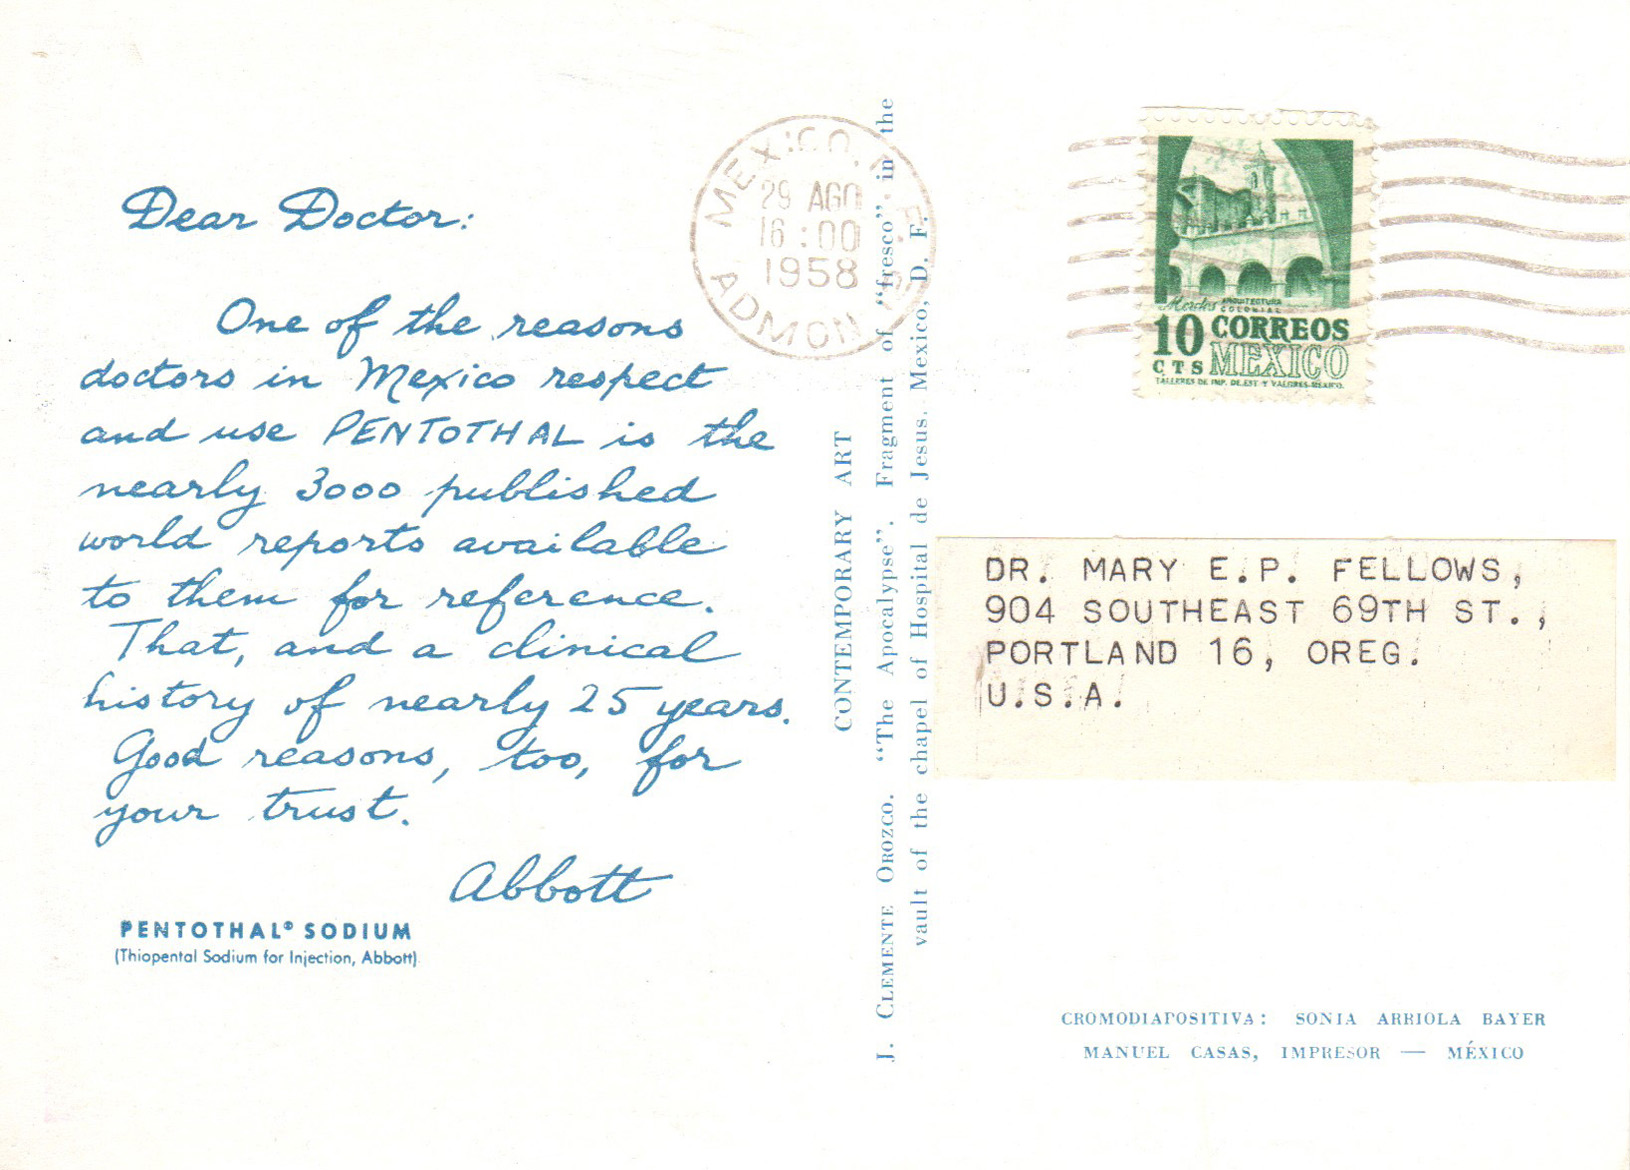 Dear Doctor:
One of the reasons
doctors in Mexico respect
and use PENTOTHAL is the
nearly 3000 published
world reports available
to them for reference.
That, and a clinical
history of nearly 25 years.
Good reasons, too, for
your trust.
Abbott
PENTOTHAL® SODIUM
(Thiopental Sodium for Injection, Abbott)
MEXICO, D. F.
29 AGO
16:00
1958
ADMON
CONTEMPORARY ART
J. CLEMENTE OROZCO. "The Apocalypse". Fragment of "fresco" in the
vault of the chapel of Hospital de Jesus. Mexico, D. F.
Morelos ARQUITECTURA
COLONIAL
10 CORREOS
CTS MEXICO
TALLERES DE IMP. DE EST. Y VALORES-MEXICO.
DR. MARY E.P. FELLOWS,
904 SOUTHEAST 69TH ST.,
PORTLAND 16, OREG.
U.S.A.
CROMODIAPOSITIVA: SONIA ARRIOLA BAYER
MANUEL CASAS, IMPRESOR — MÉXICO